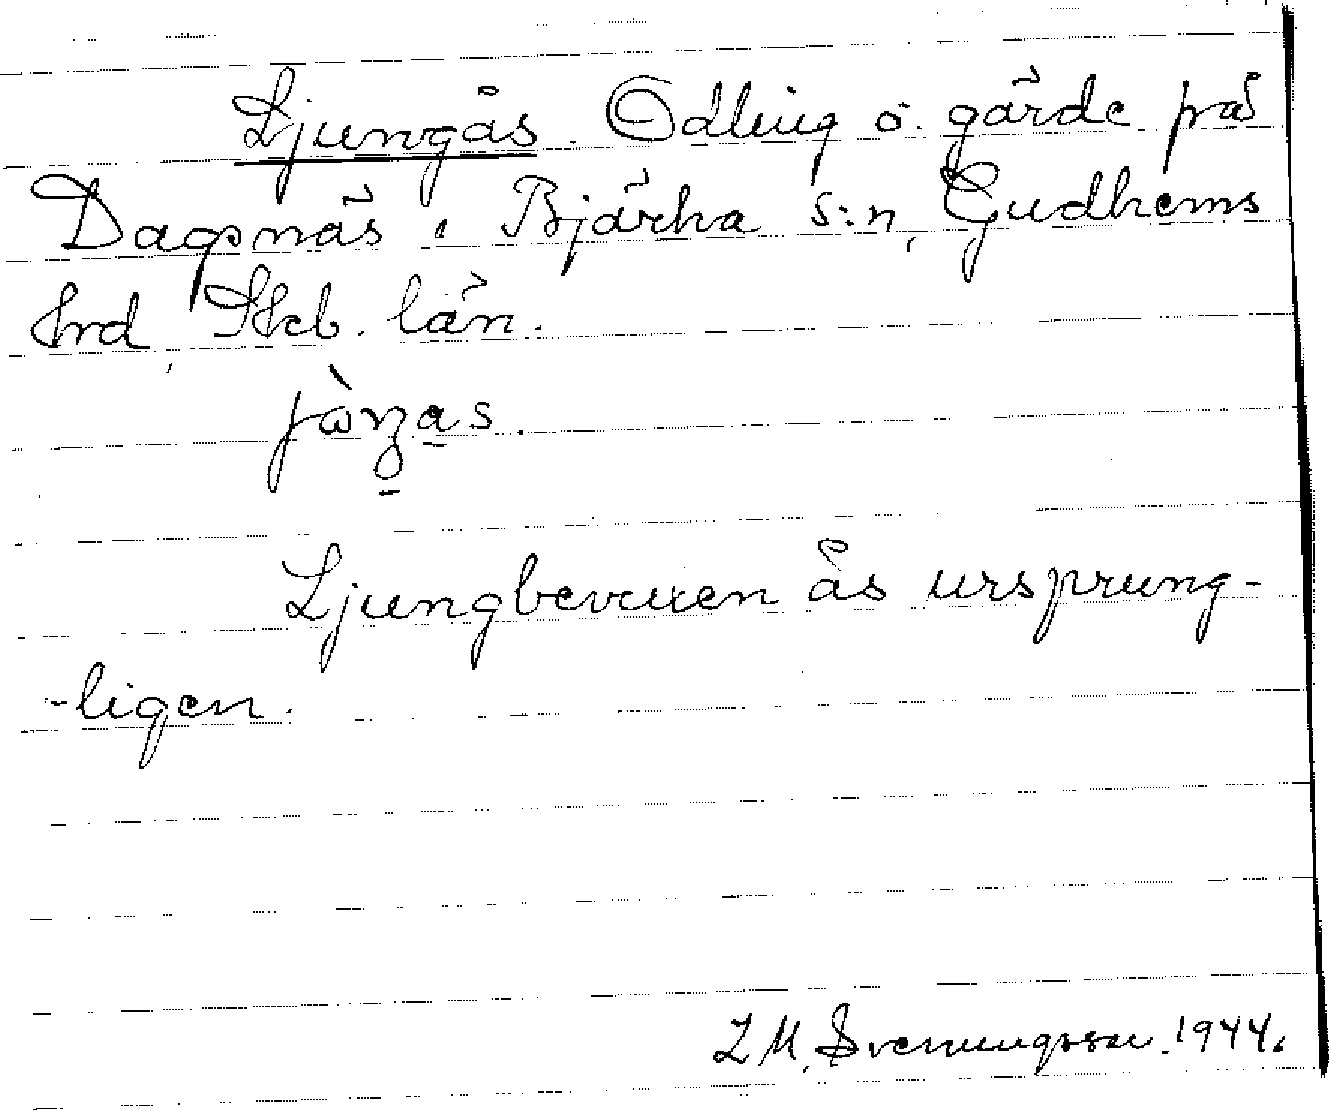 Ljungås. Odling o. gärde på
Dagsnäs i Bjärka s:n, Gudhems
hrd, Skb. län.
jòŋas.
Ljungbevuxen ås ursprung-
-ligen.
L M. Svenungsson. 1944.